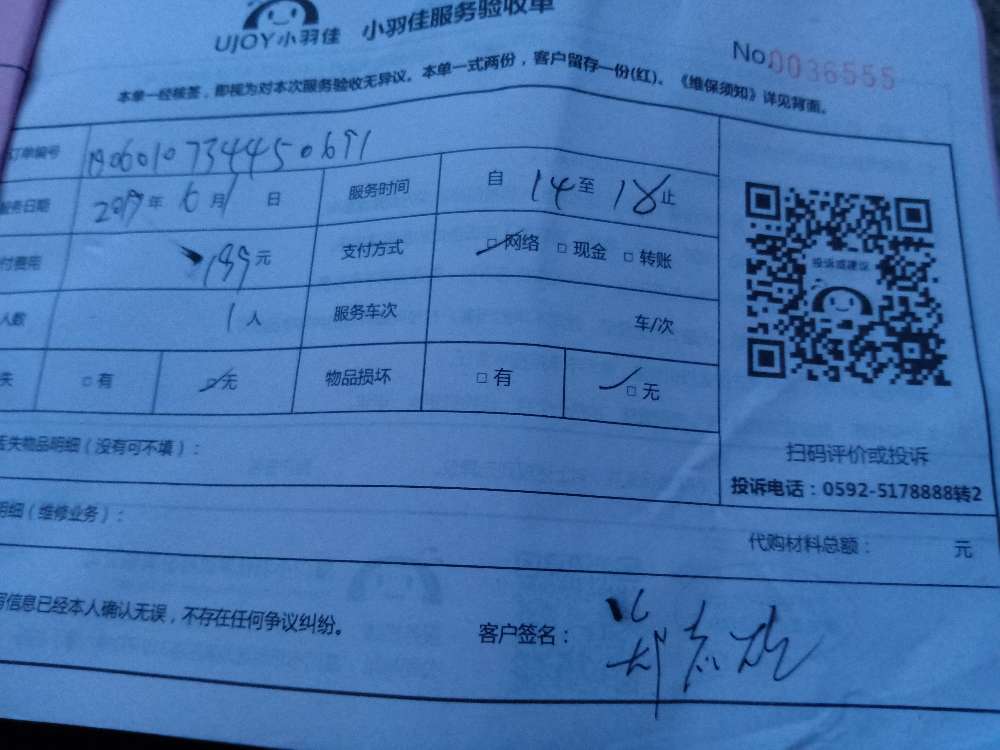 UJOY小羽佳 小羽佳服务验收单
No.0036555
本单一经核签，即视为对本次服务验收无异议。本单一式两份，客户留存一份(红)。《维保须知》详见背面。
订单编号
服务日期 2019年 6月1日 服务时间 自 14 至 18 止
付费用 199元 支付方式 □网络 □现金 □转账
人数 1人 服务车次 车/次
失 □有 □无 物品损坏 □有 □无
投诉或建议
扫码评价或投诉
投诉电话：0592-5178888转2
丢失物品明细（没有可不填）：
明细（维修业务）： 代购材料总额： 元
写信息已经本人确认无误，不存在任何争议纠纷。 客户签名：